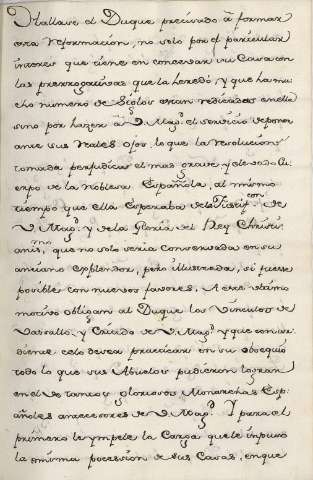 Hallase el Duque precisado à formar
esta reformacion, no solo por el particular
interes que tiene en conservar su Casa con
las prerrogativas que la heredò, y que ha mu
cho numero de Siglos estan radicadas en ella
sino por hazer à V. Mag.d el servicio de poner
ante sus reales ojos, lo que la resolucion
tomada perjudica el mas grave, y elevado Cu
erpo de la nobleza Española, al mismo
tiempo que ella esperaba de la Justif.con de
V. Mag.d y de la Gloria del Rey Christi
anis.mo que no solo seria conservada en su
anciano esplendor, pero illustrada, si fuese
posible con nuevos favores. A este ultimo
motivo obligan al Duque los vinculos de
Vasallo, y Criado de V. Mag.d y que con ar
diente celo desea practicar en su obsequio
todo lo que sus Abuelos pudieron lograr
en el de tantos gloriosos Monarchas Esp
añoles antecesores de V. Mag.d Y para el
primero le ympele la Carga que le impuso
la misma possession de sus Casas, en que